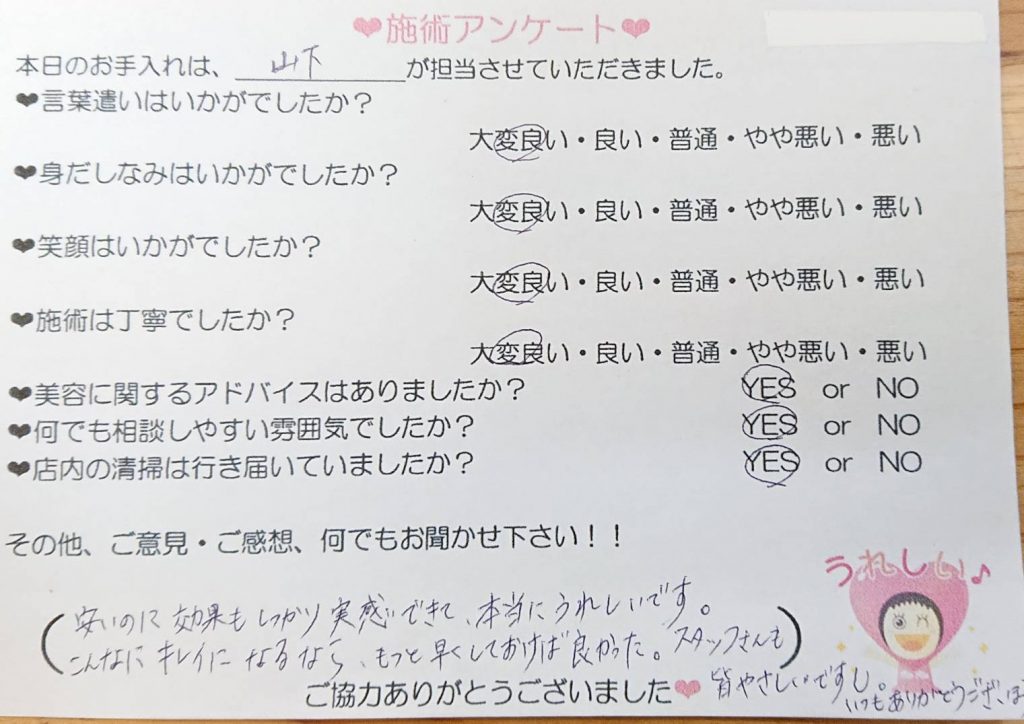 ❤施術アンケート❤
本日のお手入れは、山下が担当させていただきました。
❤言葉遣いはいかがでしたか？
大変良い・良い・普通・やや悪い・悪い
❤身だしなみはいかがでしたか？
大変良い・良い・普通・やや悪い・悪い
❤笑顔はいかがでしたか？
大変良い・良い・普通・やや悪い・悪い
❤施術は丁寧でしたか？
大変良い・良い・普通・やや悪い・悪い
❤美容に関するアドバイスはありましたか？ YES or NO
❤何でも相談しやすい雰囲気でしたか？ YES or NO
❤店内の清掃は行き届いていましたか？ YES or NO
その他、ご意見・ご感想、何でもお聞かせ下さい！！
うれしい♪
安いのに効果もしっかり実感できて、本当にうれしいです。
こんなにキレイになるなら、もっと早くしておけば良かった。スタッフさんも
皆やさしいですし。
いつもありがとうござ、ま
ご協力ありがとうございました❤